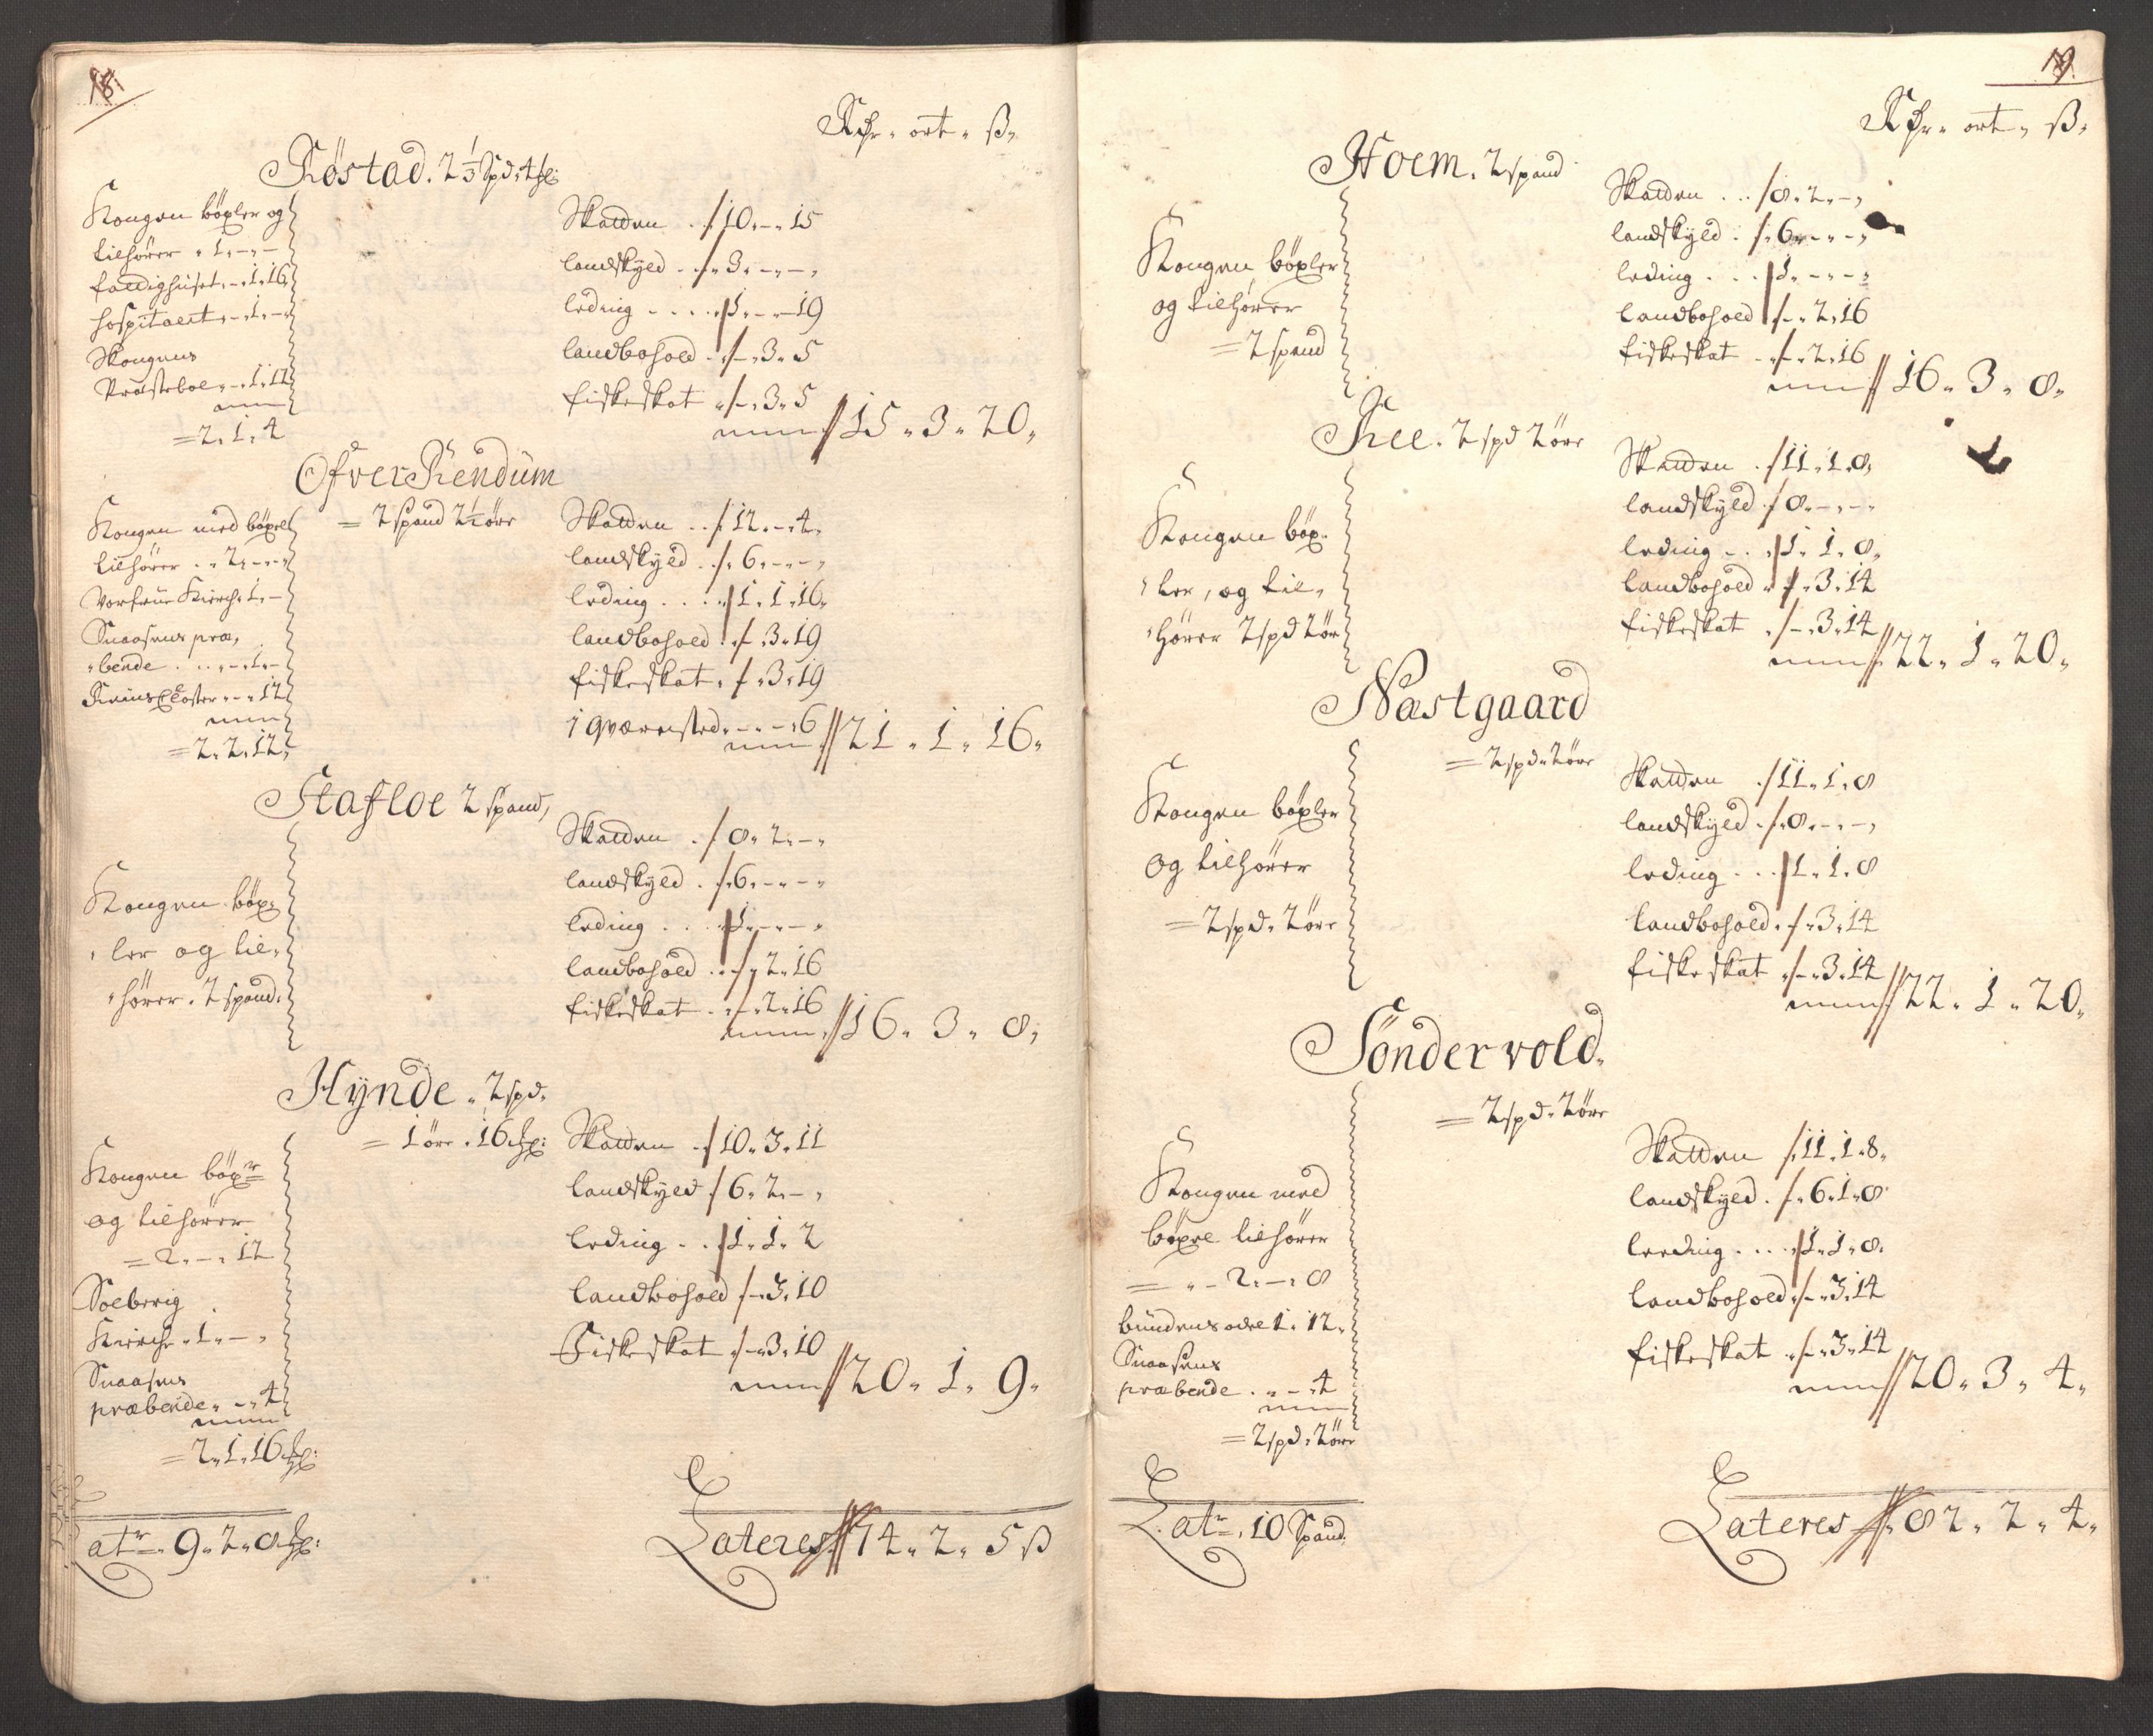 18.
Rdr. ort. ß.
Røstad. 2 1/3 Spd. 4 ſl:
Kongen böxler og
tilhører . 1. – . –
fattighuset. –. 1. 16
hospitalet. –. 1. –
Skongens
Præsteboe. –. 1. 12
= 2. 1. 4
Skatten . . 10. –. 15
landskyld . . 3. –. –.
leding . . . . 1. –. 19
landbohold . –. 3. 5
fiskeskat . –. 3. 5
15. 3. 20.
Ofver Rendum
= 2 spand 2 1/2 öre
Kongen med böxel
tilhörer . . 2. –. –
Vorfrue Kirche 1. –
Snaasens præ,
bende . . . –. 1. –
Reins Closter. –. 12
= 2. 2. 12.
Skatten . . 12. –. 4.
landskyld . . 6. –. –.
leding . . . 1. 1. 16.
landbohold . –. 3. 19
fiskeskat . –. 3. 19
1 qværnsted. –. –. 6
21. 1. 16.
Stafloe 2 spand,
Kongen böx,
ler og til,
hörer. 2 spand.
Skatten . 8. 2. –.
landskyld . 6. –. –.
leding . . . 1. –. –.
landbohold . –. 2. 16
fiskeskat . –. 2. 16
16. 3. 8.
Hynde. 2 spd.
= 1 öre. 16 ſl:
Kongen böxr
og tilhörer
= 2. –. 12
Soelberig
Kirche. 1. –.
Snaasens
præbende. –. 4
= 2. 1. 16 ſl:
Skatten . 10. 3. 11
landskyld 6. 2. –.
leding . . 1. 1. 2
landbohold –. 3. 10
Fiskeskat . –. 3. 10
20. 1. 9.
Latr. 9. 2. 8 ſl:
Lateres 74. 2. 5 ß
19.
Rdr. ort. ß.
Hoem. 2 spand
Kongen böxler
og tilhører
= 2 spand
Skatten . . . 8. 2. –.
landskyld . . 6. –. –.
leding . . . 1. –. –.
landbohold –. 2. 16
fiskeskat . –. 2. 16
16. 3. 8.
Ree. 2 spd 2 öre
Kongen böx,
ler, og til,
hörer 2 spd 2 ör
Skatten . 11. 1. 8.
landskyld . 8. –. –.
leding . . 1. 1. 8.
landbohold . –. 3. 14
fiskeskat . –. 3. 14
22. 1. 20.
Næstgaard
= 2 spd. 2 öre
Kongen böxler
og tilhörer
= 2 spd. 2 öre
Skatten . 11. 1. 8
landskyld . 8. –. –.
leding . . . 1. 1. 8
landbohold . –. 3. 14
fiskeskat . –. 3. 14
22. 1. 20.
Söndervold.
= 2 spd. 2 öre
Kongen med
böxel tilhörer
= . – 2. –. 8
bundens odel 1. 12.
Snaasens
præbende . . –. 4
= 2 spd. 2 öre
Skatten . 11. 1. 8.
landskyld . . 6. 1. 8
leeding . . . . 1. 1. 8.
landbohold . –. 3. 14
fiskeskat . –. 3. 14
20. 3. 4.
Latr. 10 Spand.
Lateres 82. 2. 4.